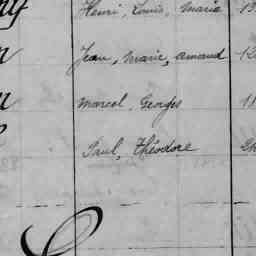 Henri, Louis, Maria
Jean, Marie, Amand
Marcel, Georges
Paul, Théodore